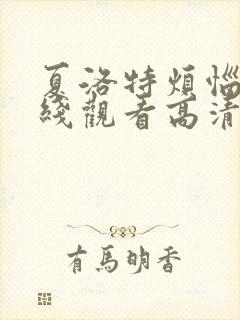 夏洛特煩惱
綫觀看高清
有馬明香